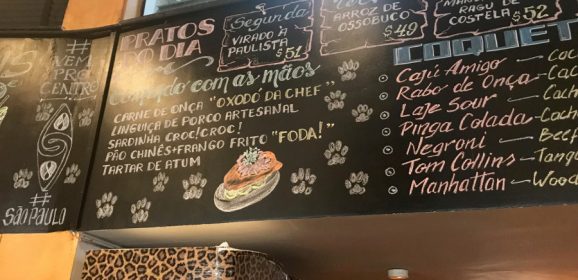 #
VEM
PRO
CENTRO
#
SÃO PAULO
PRATOS
DO DIA
Segunda
VIRADO À
PAULISTA
$51
ARROZ DE
OSSOBUCO
$49
RAGU DE
COSTELA $52
Comendo com as mãos
CARNE DE ONÇA "OXODÓ DA CHEF"
LINGUIÇA DE PORCO ARTESANAL
SARDINHA CROC!CROC!
PÃO CHINÊS+FRANGO FRITO "FODA!"
TARTAR DE ATUM
COQUET
Cajú Amigo
Rabo de Onça
Laje Sour
Pinga Colada
Negroni
Tom Collins
Manhattan